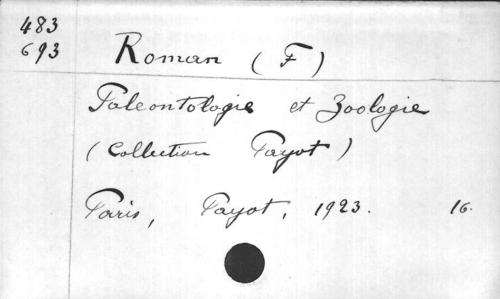 483
693
Roman (F)
Paleontologie et Zoologie
(Collection Payot)
Paris, Payot, 1923. 16.